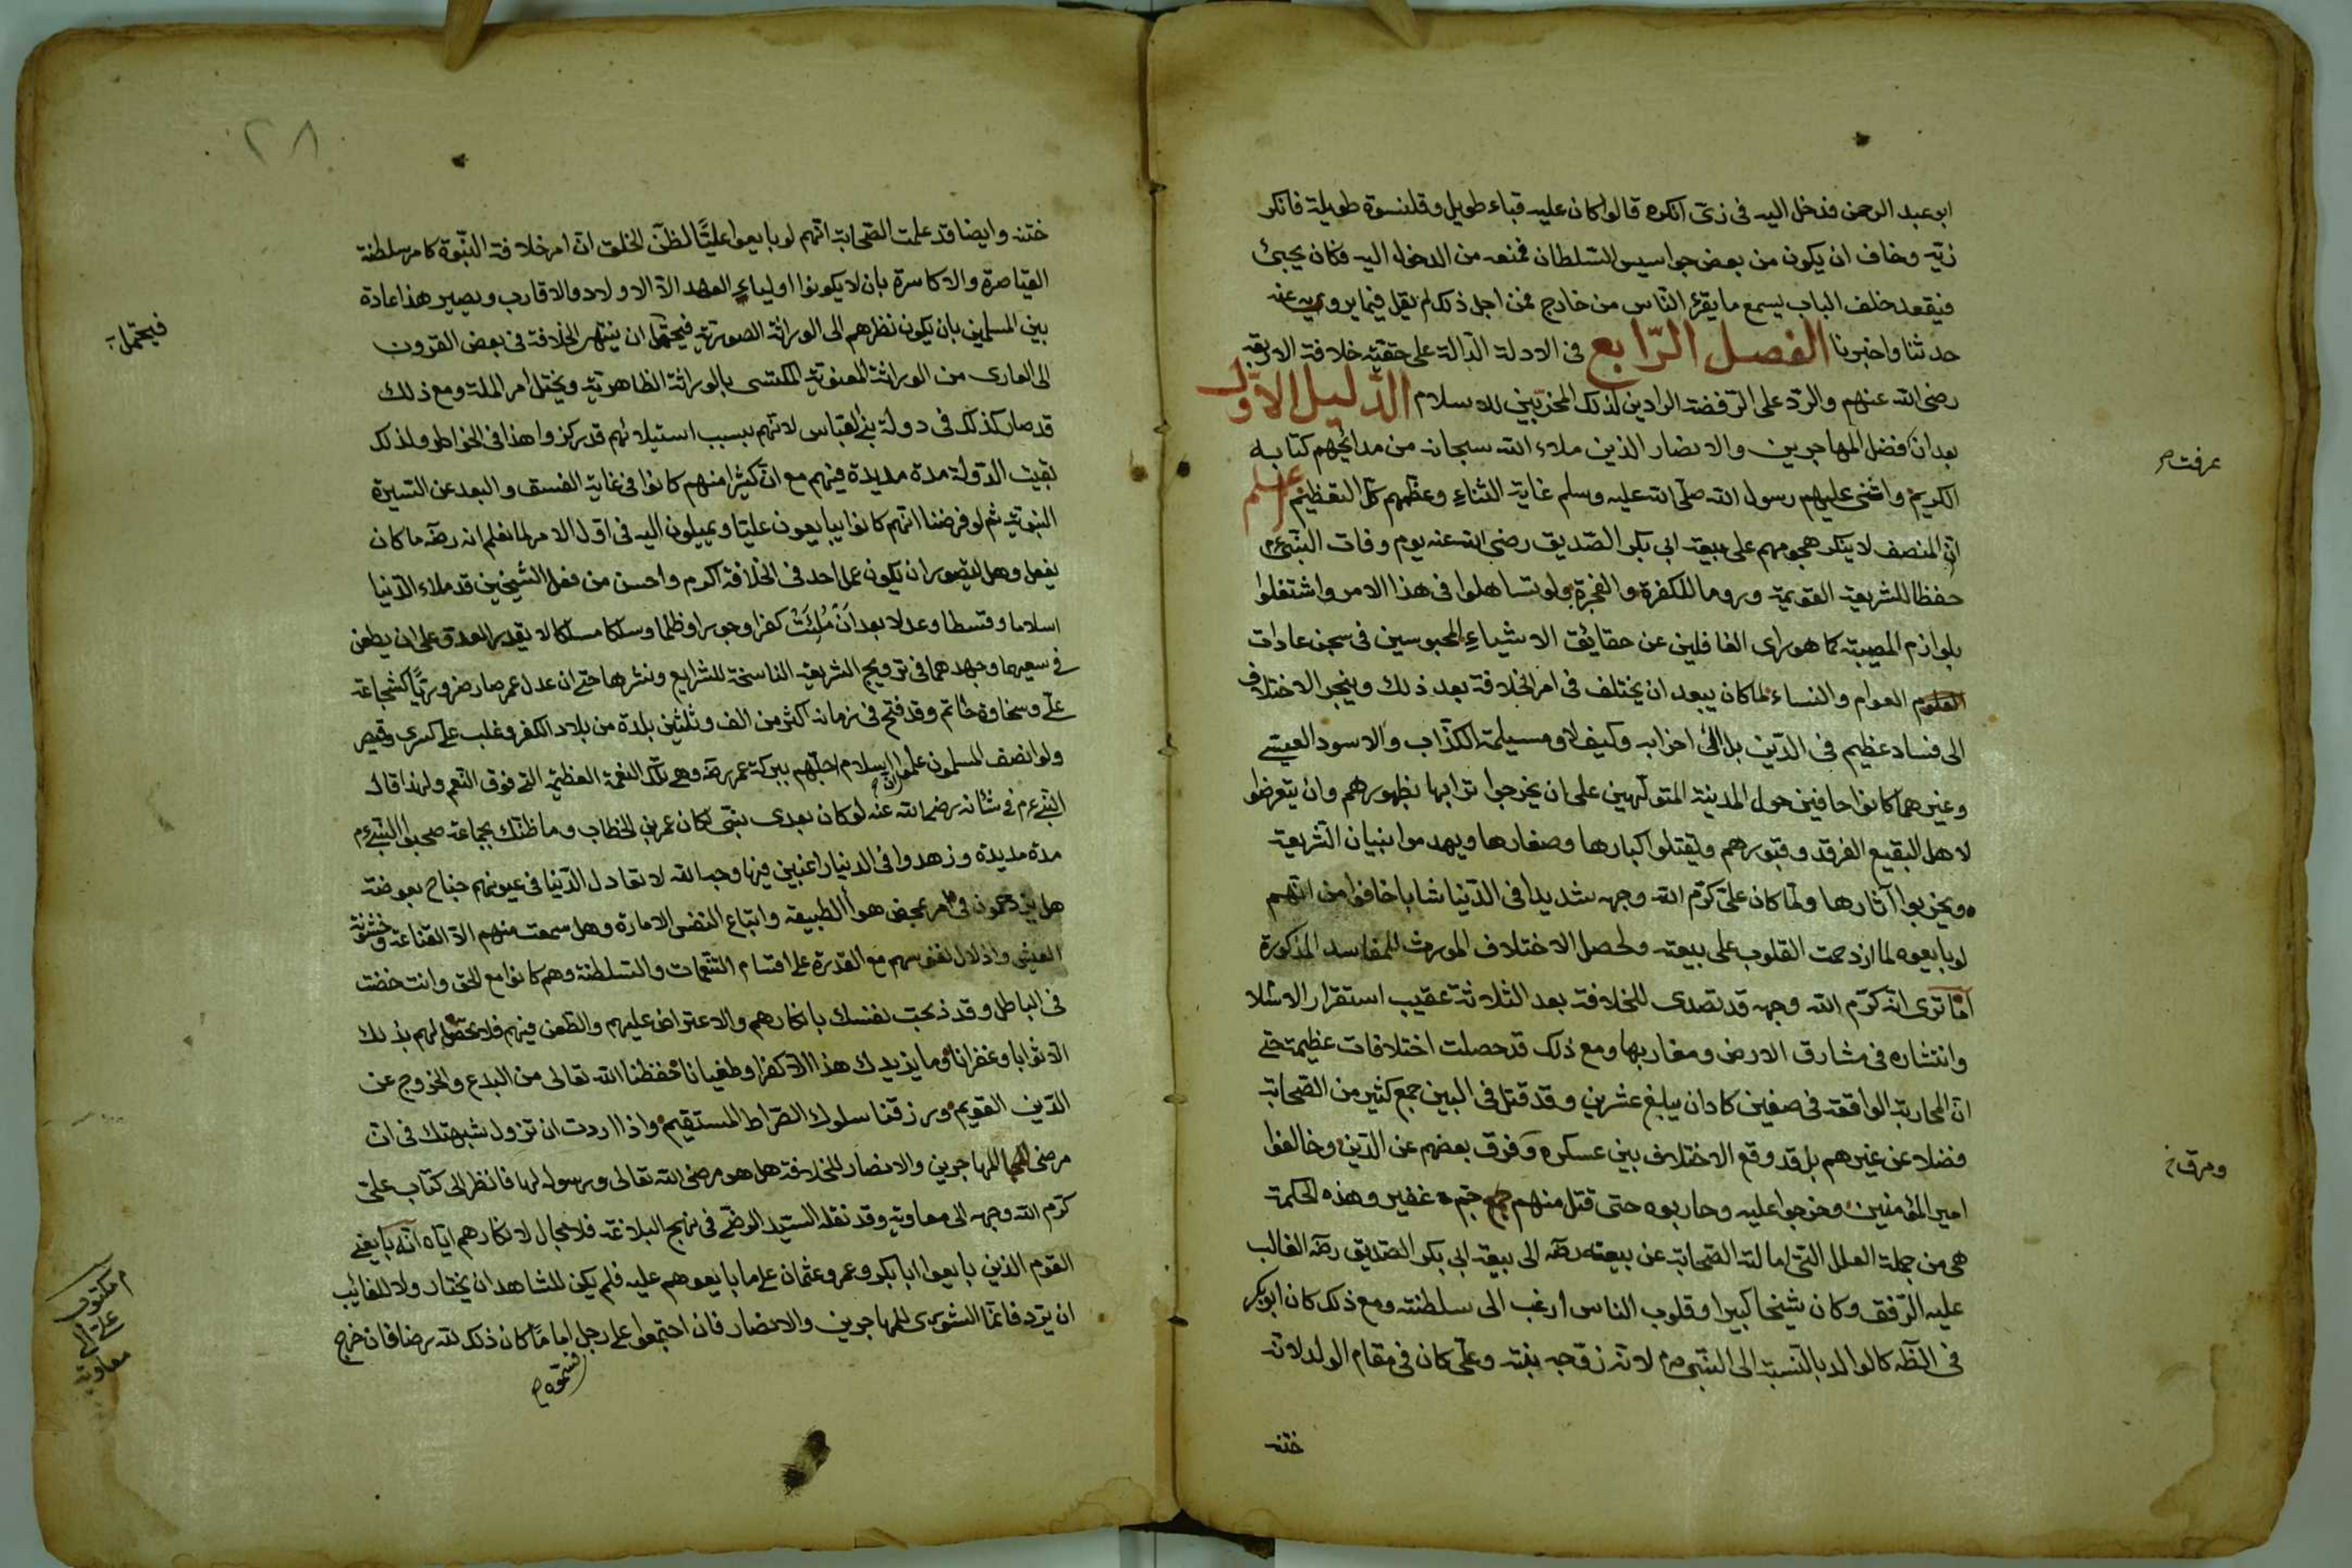 ابو عبد الرحمن فدخل اليه فى زىّ انكره قالوا كان عليه قباء طويل وقلنسوة طويلة فانكر
زيّه وخاف ان يكون من بعض جواسيس السّلطان فمنعه من الدخول اليه فكان يجيئ
فيقعد خلف الباب يسمع ما يقرء النّاس من خارج فمن اجل ذلك لم يقل فيما يرويه عنه
حدثنا واخبرنا الفصل الرّابع فى الادلة الدّالة على حقيّة خلافة الاربعة
رضى الله عنهم والرّد على الرّفضة الرادين لذلك المخربين للاسلام الدّليل الاوّل
بعد ان عرفت فضل المهاجرين والانصار الذين ملاء الله سبحانه من مدائحهم كتابه
الكريم واثنى عليهم رسول الله صلّى الله عليه وسلم غاية الثناء وعظّمهم كلّ التعظيم علم
انّ المنصف لا ينكر هجومهم على بيعة ابى بكر الصّديق رضى الله عنه يوم وفات النّبىّ عم
حفظا للشريعة القويمة وروما للكفرة والفجرة ولو تساهلوا فى هذا الامر واشتغلوا
بلوازم المصيبة كما هو راى الغافلين عن حقائق الاشياء المحبوسين فى سجن عادات
العوام والنساء لما كان يبعد ان يختلف فى امر الخلافة بعد ذلك وينجر الاختلاف
الى فساد عظيم فى الدّين بل الى خرابه وكيف لا ومسيلمة الكذّاب والاسود العيسى
وغيرهما كانوا حافين حول المدينة المتولّهين على ان يخرجوا ترابها بظهورهم وان يتعرضوا
لاهل البقيع الغرقد وقبورهم ويقتلوا كبارها وصغارها ويهدموا بنيان الشّريعة
ويخربوا آثارها ولمّا كان علىّ كرّم الله وجهه شديدا فى الدّنيا شابا خافوا من انّهم
لو بايعوه لما ازدحمت القلوب على بيعته ولحصل الاختلاف المورث للمفاسد المذكورة
اما ترى انه كرّم الله وجهه قد تصدى للخلافة بعد الثلاثة عقيب استقرار الاسلا
وانتشاره فى مشارق الارض ومغاربها ومع ذلك قد حصلت اختلافات عظيمة حتى
انّ المحاربة الواقعة فى صفين كاد ان يبلغ عشرين وقد قتل فى البين جمع كثير من الصّحابة
فضلا عن غيرهم بل قد وقع الاختلاف بين عسكره ومرق بعضهم عن الدّين وخالفوا
امير المؤمنين وخرجوا عليه وحاربوه حتى قتل منهم جم غفير وهذه الحكمة
هى من جملة العلل التى امالت الصّحابة عن بيعته رضه الى بيعة ابى بكر الصّديق رضه الغالب
عليه الرّفق وكان شيخا كبيرا وقلوب الناس ارغب الى سلطنته ومع ذلك كان ابو بكر
فى الظّه كالوالد بالنّسبة الى النّبى عم لانّه زوّجه بنته وعلىّ كان فى مقام الولد لانّه
ختنه
عرفت صح
ومرق
٢٨
ختنه وايضا قد علمت الصّحابة انّهم لو بايعوا عليّا لظنّ الخلق انّ امر خلافة النّبوّة كامر سلطنة
القياصرة والاكاسرة بان لا يكونوا اولياء العهد الّا الاولاد والاقارب ويصير هذا عادة
بين المسلمين بان يكون نظرهم الى الوراثة الصوريّة فيحتمل ان ينتهى الخلافة فى بعض القرون
الى العارى من الوراثة المعنويّة المكتسى بالوراثة الظاهريّة ويختل امر الملة ومع ذلك
قد صار كذلك فى دولة بنى العبّاس لانّهم بسبب استيلائهم قد ركزوا هذا فى الخواطر ولذلك
بقيت الدّولة مدة مديدة فيهم مع انّ كثيرا منهم كانوا فى غاية الفسق والبعد عن السّيرة
النبويّة ثم لو فرضنا انّهم كانوا يبايعون عليّا ويميلون اليه فى اوّل الامر لما نعلم انه رضه ما كان
يفعل وهل يتصور ان يكون عمل احد فى الخلافة اكرم واحسن من فعل الشّيخين قد ملاء الدّنيا
اسلاما وقسطا وعدلا بعد ان مُلِئَتْ كفرا وجورا وظلما وسلكا مسلكا لا يقدر العدوّ على ان يطعن
فى سعيهما وجهدهما فى ترويج الشّريعة الناسخة للشرايع ونشرها حتى ان عدل عمر صار ضروريّا كشجاعة
علىّ وسخاوة حاتم وقد فتح فى زمانه اكثر من الف وثلثين بلدة من بلاد الكفر وغلب على كسرى وقيصر
ولو انصف المسلمون علموا ان اسلام اجلّهم ببركة عمر رضه وهى تلك النعمة العظيمة التى فوق النّعم ولهذا قال
النّبى عم فى شانه رضى الله عنه لو كان بعدى نبىّ لكان عمر بن الخطاب وما ظنّك بجماعة صحبوا النّبى عم
مدة مديدة وزهدوا فى الدنيا راغبين فيها وجه الله لا تعادل الدّنيا فى عيونهم جناح بعوضة
هل يزدحمون فى امر بمحض هوا الطبيعة واتباع النفس الامارة وهل سمعت منهم الّا القناعة وخشونة
العيش واذلال نفوسهم مع القدرة على اقسام التنعّمات والسّلطنة وهم كانوا مع الحق وانت خضت
فى الباطل وقد ذبحت نفسك بانكارهم والاعتراض عليهم والطّعن فيهم فلا يحصل لهم بذلك
الّا ثوابا وغفرانا وما يزيدك هذا الّا كفرا وطغيانا حفظنا الله تعالى من البدع والخروج عن
الدّين القويم ورزقنا سلوك الصّراط المستقيم واذا اردت ان تزول شبهتك فى انّ
مرضى المهاجرين والانصار للخلافة هل هو مرضى الله تعالى ورسوله لها فانظر الى كتاب علىّ
كرّم الله وجهه الى معاوية وقد نقله السّيد الرضىّ فى نهج البلاغة فلا مجال لانكارهم ايّاه انّه بايعنى
القوم الذين بايعوا ابا بكر وعمر وعثمان على ما بايعوهم عليه فلم يكن للشاهد ان يختار ولا للغائب
ان يردّ فانّما الشورى للمهاجرين والانصار فان اجتمعوا على رجل وسمّوه اماما كان ذلك لله رضا فان خرج
فيحتمل
مكتوب
على الى
معاوية